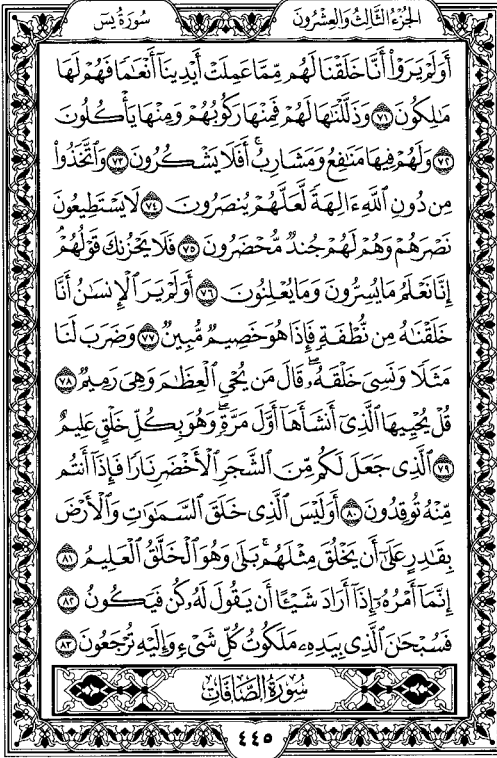 سُورَةُ يسٓ
الجُزْءُ الثَّالِثُ وَالعِشْرُونَ
أَوَلَمْ يَرَوْا۟ أَنَّا خَلَقْنَا لَهُم مِّمَّا عَمِلَتْ أَيْدِينَآ أَنْعَٰمًا فَهُمْ لَهَا
مَٰلِكُونَ ٧١ وَذَلَّلْنَٰهَا لَهُمْ فَمِنْهَا رَكُوبُهُمْ وَمِنْهَا يَأْكُلُونَ
٧٢ وَلَهُمْ فِيهَا مَنَٰفِعُ وَمَشَارِبُ ۖ أَفَلَا يَشْكُرُونَ ٧٣ وَٱتَّخَذُوا۟
مِن دُونِ ٱللَّهِ ءَالِهَةً لَّعَلَّهُمْ يُنصَرُونَ ٧٤ لَا يَسْتَطِيعُونَ
نَصْرَهُمْ وَهُمْ لَهُمْ جُندٌ مُّحْضَرُونَ ٧٥ فَلَا يَحْزُنكَ قَوْلُهُمْ
إِنَّا نَعْلَمُ مَا يُسِرُّونَ وَمَا يُعْلِنُونَ ٧٦ أَوَلَمْ يَرَ ٱلْإِنسَٰنُ أَنَّا
خَلَقْنَٰهُ مِن نُّطْفَةٍ فَإِذَا هُوَ خَصِيمٌ مُّبِينٌ ٧٧ وَضَرَبَ لَنَا
مَثَلًا وَنَسِىَ خَلْقَهُۥ ۖ قَالَ مَن يُحْىِ ٱلْعِظَٰمَ وَهِىَ رَمِيمٌ ٧٨
قُلْ يُحْيِيهَا ٱلَّذِىٓ أَنشَأَهَآ أَوَّلَ مَرَّةٍ ۖ وَهُوَ بِكُلِّ خَلْقٍ عَلِيمٌ
٧٩ ٱلَّذِى جَعَلَ لَكُم مِّنَ ٱلشَّجَرِ ٱلْأَخْضَرِ نَارًا فَإِذَآ أَنتُم
مِّنْهُ تُوقِدُونَ ٨٠ أَوَلَيْسَ ٱلَّذِى خَلَقَ ٱلسَّمَٰوَٰتِ وَٱلْأَرْضَ
بِقَٰدِرٍ عَلَىٰٓ أَن يَخْلُقَ مِثْلَهُم ۚ بَلَىٰ وَهُوَ ٱلْخَلَّٰقُ ٱلْعَلِيمُ ٨١
إِنَّمَآ أَمْرُهُۥٓ إِذَآ أَرَادَ شَيْـًٔا أَن يَقُولَ لَهُۥ كُن فَيَكُونُ ٨٢
فَسُبْحَٰنَ ٱلَّذِى بِيَدِهِۦ مَلَكُوتُ كُلِّ شَىْءٍ وَإِلَيْهِ تُرْجَعُونَ ٨٣
سُورَةُ الصَّافَّاتِ
٤٤٥